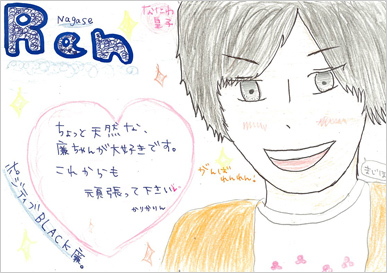 Nagase
Ren
なにわ
皇子
ちょっと天然な、
廉ちゃんが大好きです。
これからも
頑張って下さい
かりかりん
がんばれれんれん!
ポジティブBLACK廉。